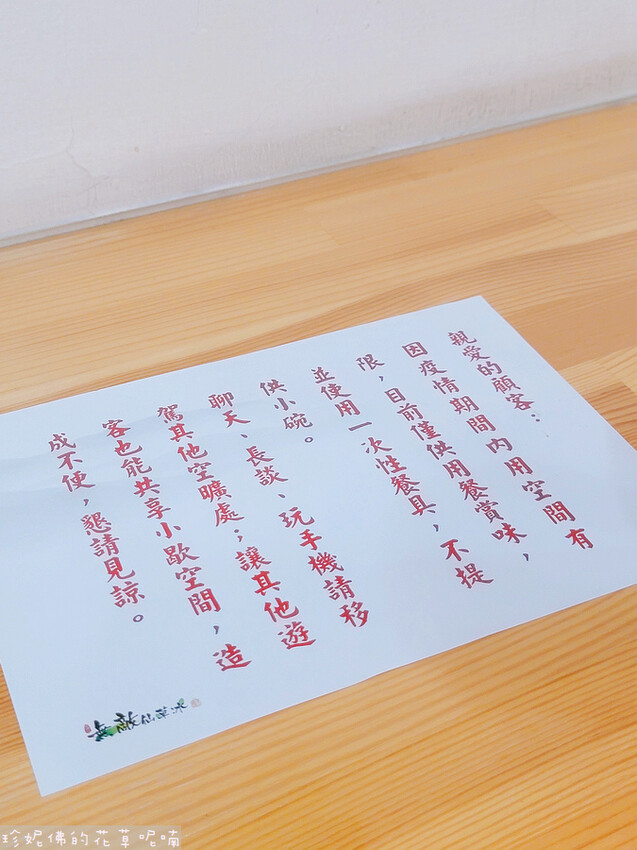 親愛的顧客：
因疫情期間內用空間有
限，目前僅供用餐賞味，
並使用一次性餐具，不提
供小碗。
聊天、長談、玩手機請移
駕其他空曠處；讓其他遊
客也能共享小歇空間，造
成不便，懇請見諒。
無敵仙草冰
珍妮佛的花草呢喃